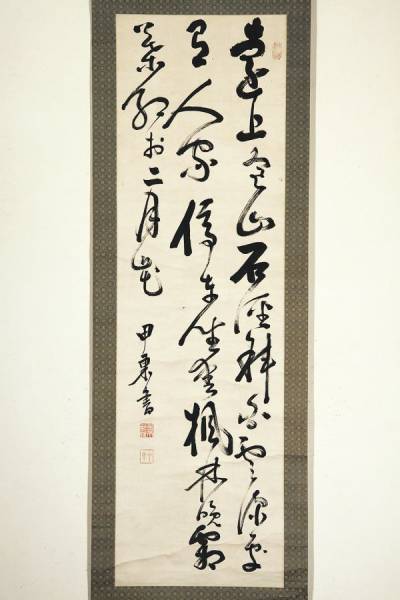 遠上寒山石徑斜白雲深處
有人家停車坐愛楓林晚霜
葉紅於二月花
甲東書